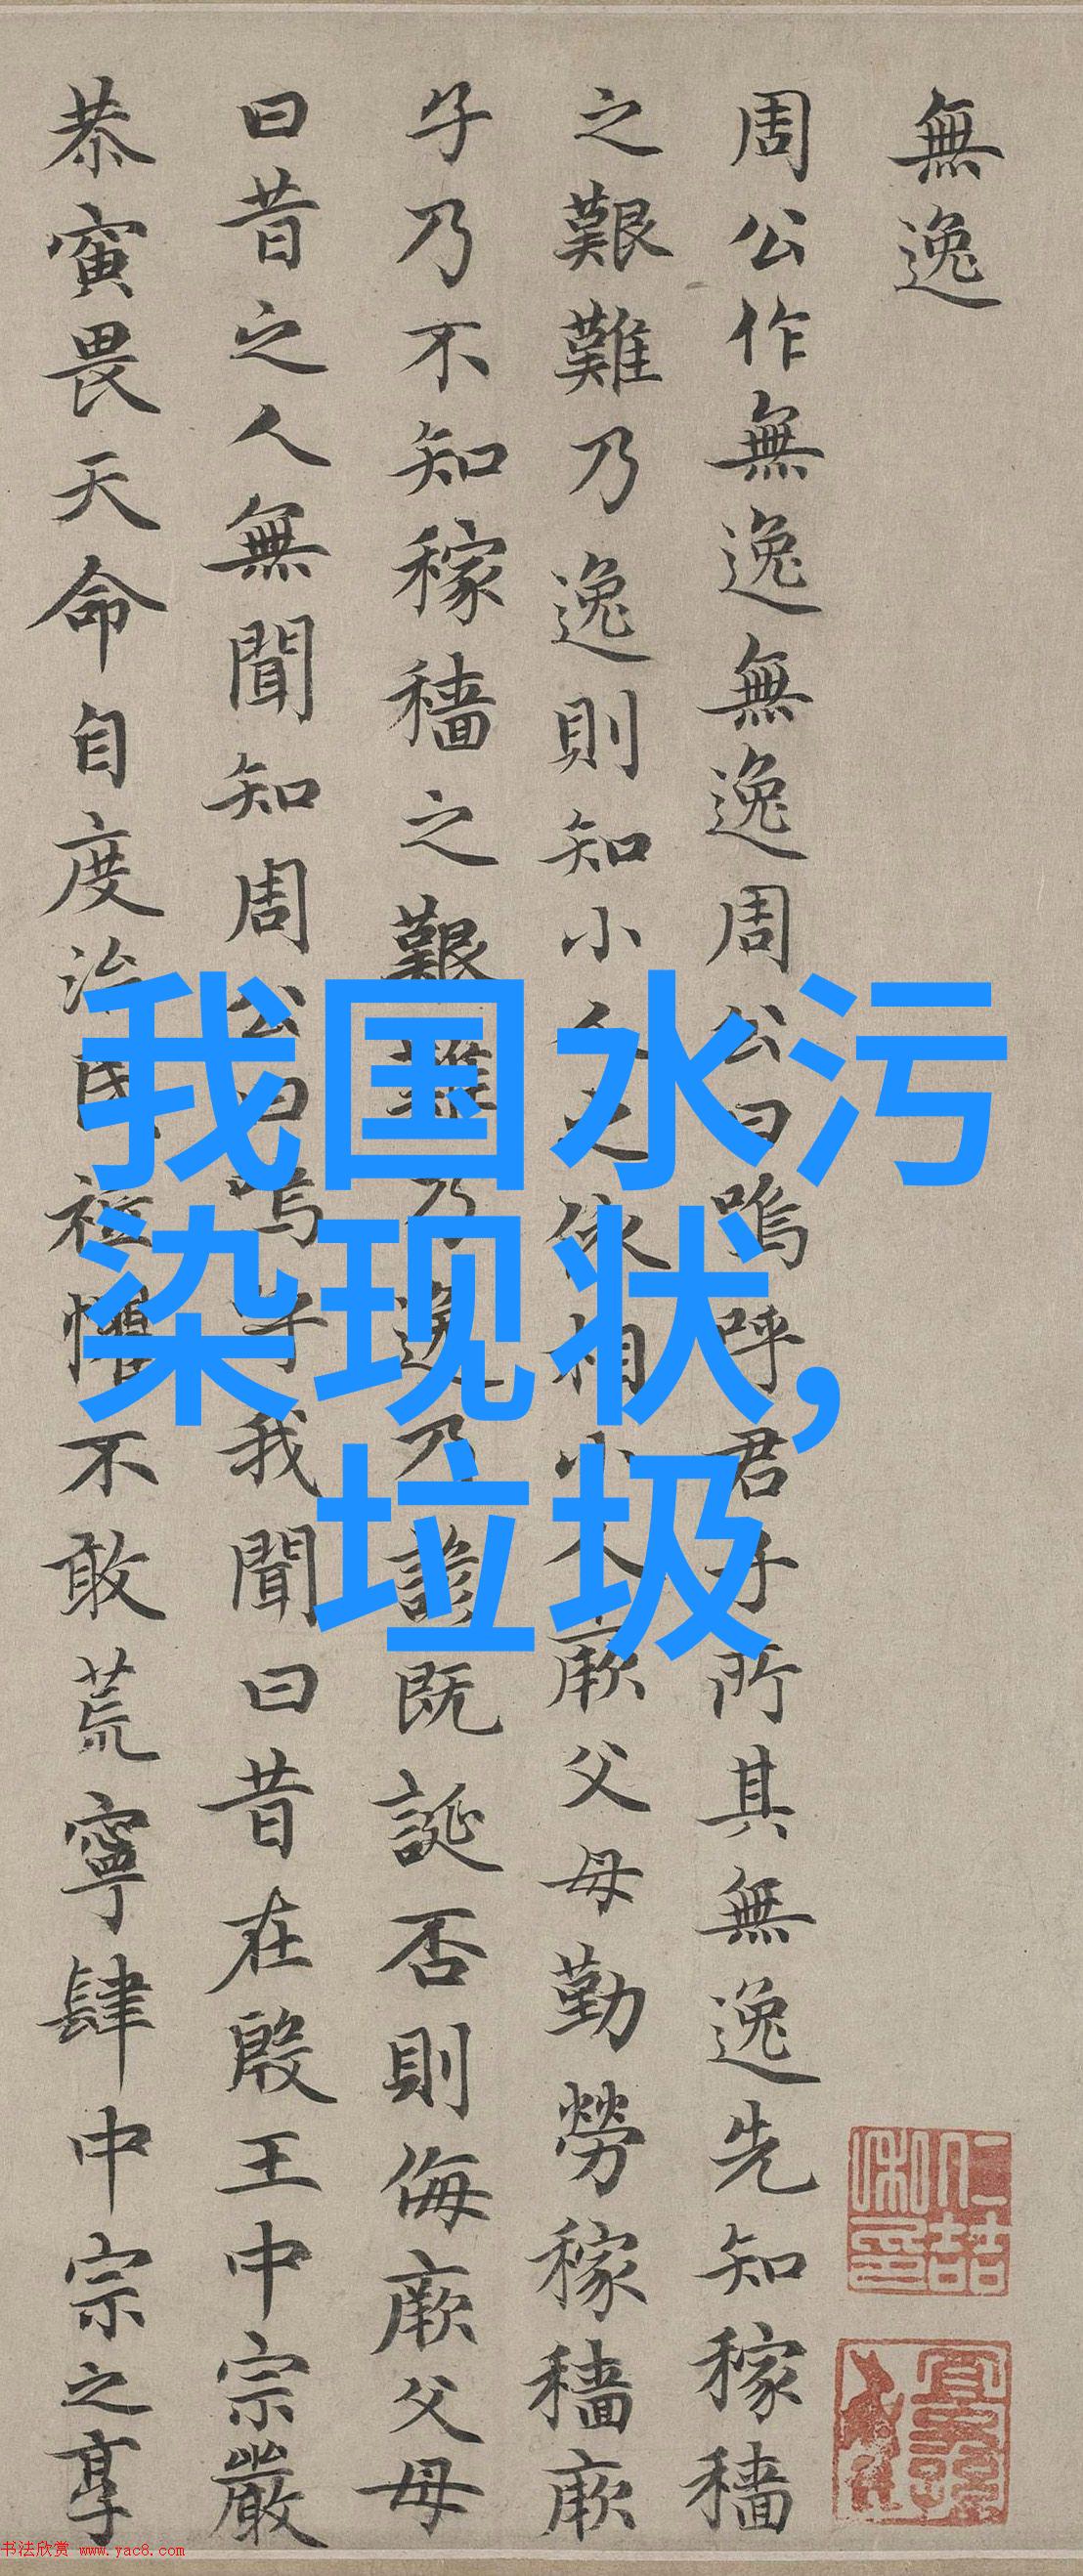 無逸
周公作無逸無逸周公曰嗚呼君子所其無逸先知稼穡
之艱難乃逸則知小人之依相小人厥父母勤勞稼穡厥
子乃不知稼穡之艱難乃逸乃諺既誕否則侮厥父母
曰昔之人無聞知周公曰嗚乎我聞曰昔在殷王中宗嚴
恭寅畏天命自度治民祗懼不敢荒寧肆中宗之享
我国水污
染现状,
垃圾
书法欣赏 www.yac8.com